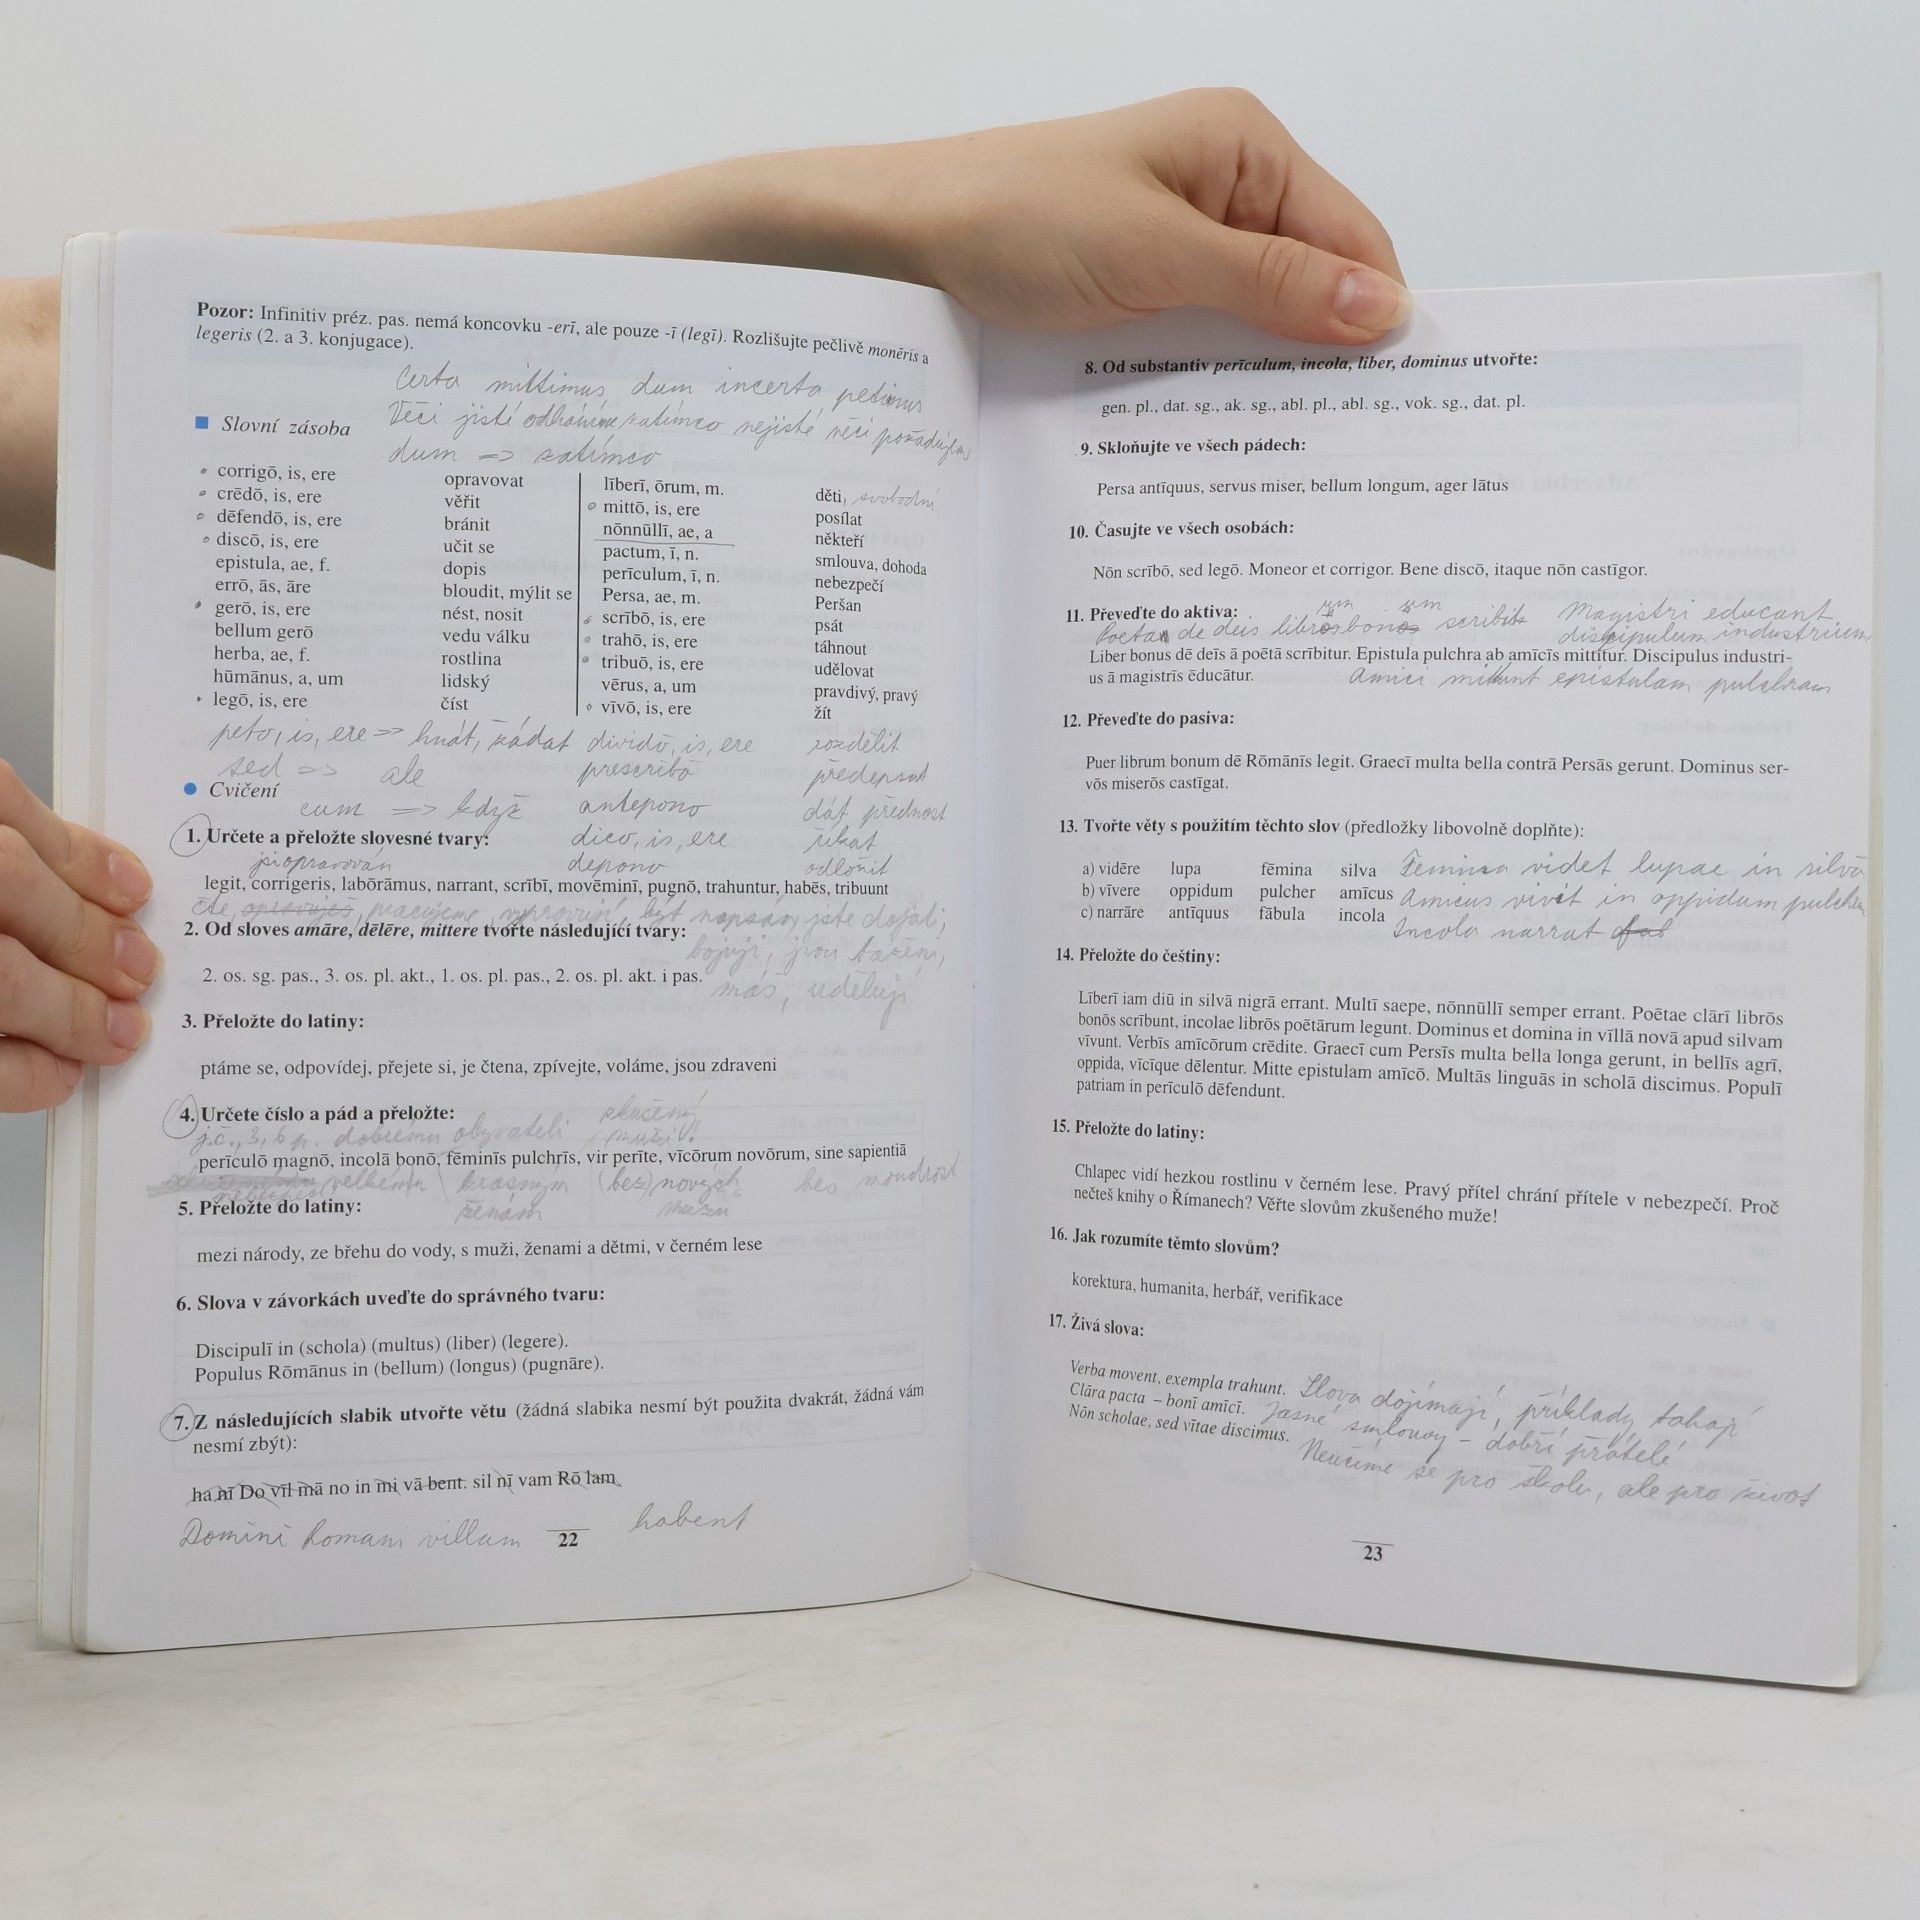 Pozor: Infinitiv préz. pas. nemá koncovku -erī, ale pouze -ī (legī). Rozlišujte pečlivě monēris a
legeris (2. a 3. konjugace).
Certa mittimus dum incerta petimus
Věci jisté odháníme zatímco nejisté věci požadujeme
Slovní zásoba
dum => zatímco
corrigō, is, ere opravovat
crēdō, is, ere věřit
dēfendō, is, ere bránit
discō, is, ere učit se
epistula, ae, f. dopis
errō, ās, āre bloudit, mýlit se
gerō, is, ere nést, nosit
bellum gerō vedu válku
herba, ae, f. rostlina
hūmānus, a, um lidský
legō, is, ere číst
līberī, ōrum, m. děti, svobodní
mittō, is, ere posílat
nōnnūllī, ae, a někteří
pactum, ī, n. smlouva, dohoda
perīculum, ī, n. nebezpečí
Persa, ae, m. Peršan
scrībō, is, ere psát
trahō, is, ere táhnout
tribuō, is, ere udělovat
vērus, a, um pravdivý, pravý
vīvō, is, ere žít
peto, is, ere => hnát, žádat dividō, is, ere rozdělit
sed => ale prescribō předepsat
Cvičení
cum => když antepono dát přednost
1. Určete a přeložte slovesné tvary: dico, is, ere říkat
jsi opravován depono odložit
legit, corrigeris, labōrāmus, narrant, scrībī, movēminī, pugnō, trahuntur, habēs, tribuunt
čte, opravuješ, pracujeme, vypravují, být napsán, jste dojati,
2. Od sloves amāre, dēlēre, mittere tvořte následující tvary:
bojuji, jsou taženi,
2. os. sg. pas., 3. os. pl. akt., 1. os. pl. pas., 2. os. pl. akt. i pas.
máš, udělují
3. Přeložte do latiny:
ptáme se, odpovídej, přejete si, je čtena, zpívejte, voláme, jsou zdraveni
4. Určete číslo a pád a přeložte:
j.č., 3, 6 p. dobrému obyvateli zkušený muži!
perīculō magnō, incolā bonō, fēminīs pulchrīs, vir perīte, vīcōrum novōrum, sine sapientiā
velkému krásným (bez) nových bes moudrost
nebezpečí ženám
5. Přeložte do latiny:
mezi národy, ze břehu do vody, s muži, ženami a dětmi, v černém lese
6. Slova v závorkách uveďte do správného tvaru:
Discipulī in (schola) (multus) (liber) (legere).
Populus Rōmānus in (bellum) (longus) (pugnāre).
7. Z následujících slabik utvořte větu (žádná slabika nesmí být použita dvakrát, žádná vám
nesmí zbýt):
ha nī Do vīl mā no in mi vā bent. sil nī vam Rō lam
Domini Romani villam habent
22
8. Od substantiv perīculum, incola, liber, dominus utvořte:
gen. pl., dat. sg., ak. sg., abl. pl., abl. sg., vok. sg., dat. pl.
9. Skloňujte ve všech pádech:
Persa antīquus, servus miser, bellum longum, ager lātus
10. Časujte ve všech osobách:
Nōn scrībō, sed legō. Moneor et corrigor. Bene discō, itaque nōn castīgor.
11. Převeďte do aktiva: Magistri educant
Poeta de deis scribit discipulum industrium
Liber bonus dē deīs ā poētā scrībitur. Epistula pulchra ab amīcīs mittitur. Discipulus industri-
us ā magistrīs ēducātur. Amici mittunt epistulam pulchram
12. Převeďte do pasiva:
Puer librum bonum dē Rōmānīs legit. Graecī multa bella contrā Persās gerunt. Dominus ser-
vōs miserōs castīgat.
13. Tvořte věty s použitím těchto slov (předložky libovolně doplňte):
a) vidēre lupa fēmina silva Femina videt lupae in silvā
b) vīvere oppidum pulcher amīcus Amicus vivit in oppidum
c) narrāre antīquus fābula incola Incola narrat fab
14. Přeložte do češtiny:
Līberī iam diū in silvā nigrā errant. Multī saepe, nōnnūllī semper errant. Poētae clārī librōs
bonōs scrībunt, incolae librōs poētārum legunt. Dominus et domina in vīllā novā apud silvam
vīvunt. Verbīs amīcōrum crēdite. Graecī cum Persīs multa bella longa gerunt, in bellīs agrī,
oppida, vīcīque dēlentur. Mitte epistulam amīcō. Multās linguās in scholā discimus. Populī
patriam in perīculō dēfendunt.
15. Přeložte do latiny:
Chlapec vidí hezkou rostlinu v černém lese. Pravý přítel chrání přítele v nebezpečí. Proč
nečteš knihy o Římanech? Věřte slovům zkušeného muže!
16. Jak rozumíte těmto slovům?
korektura, humanita, herbář, verifikace
17. Živá slova:
Verba movent, exempla trahunt. Slova dojímají, příklady tahají
Clāra pacta – bonī amīcī. Jasné smlouvy – dobří přátelé
Nōn scholae, sed vītae discimus. Neučíme se pro školu, ale pro život
23